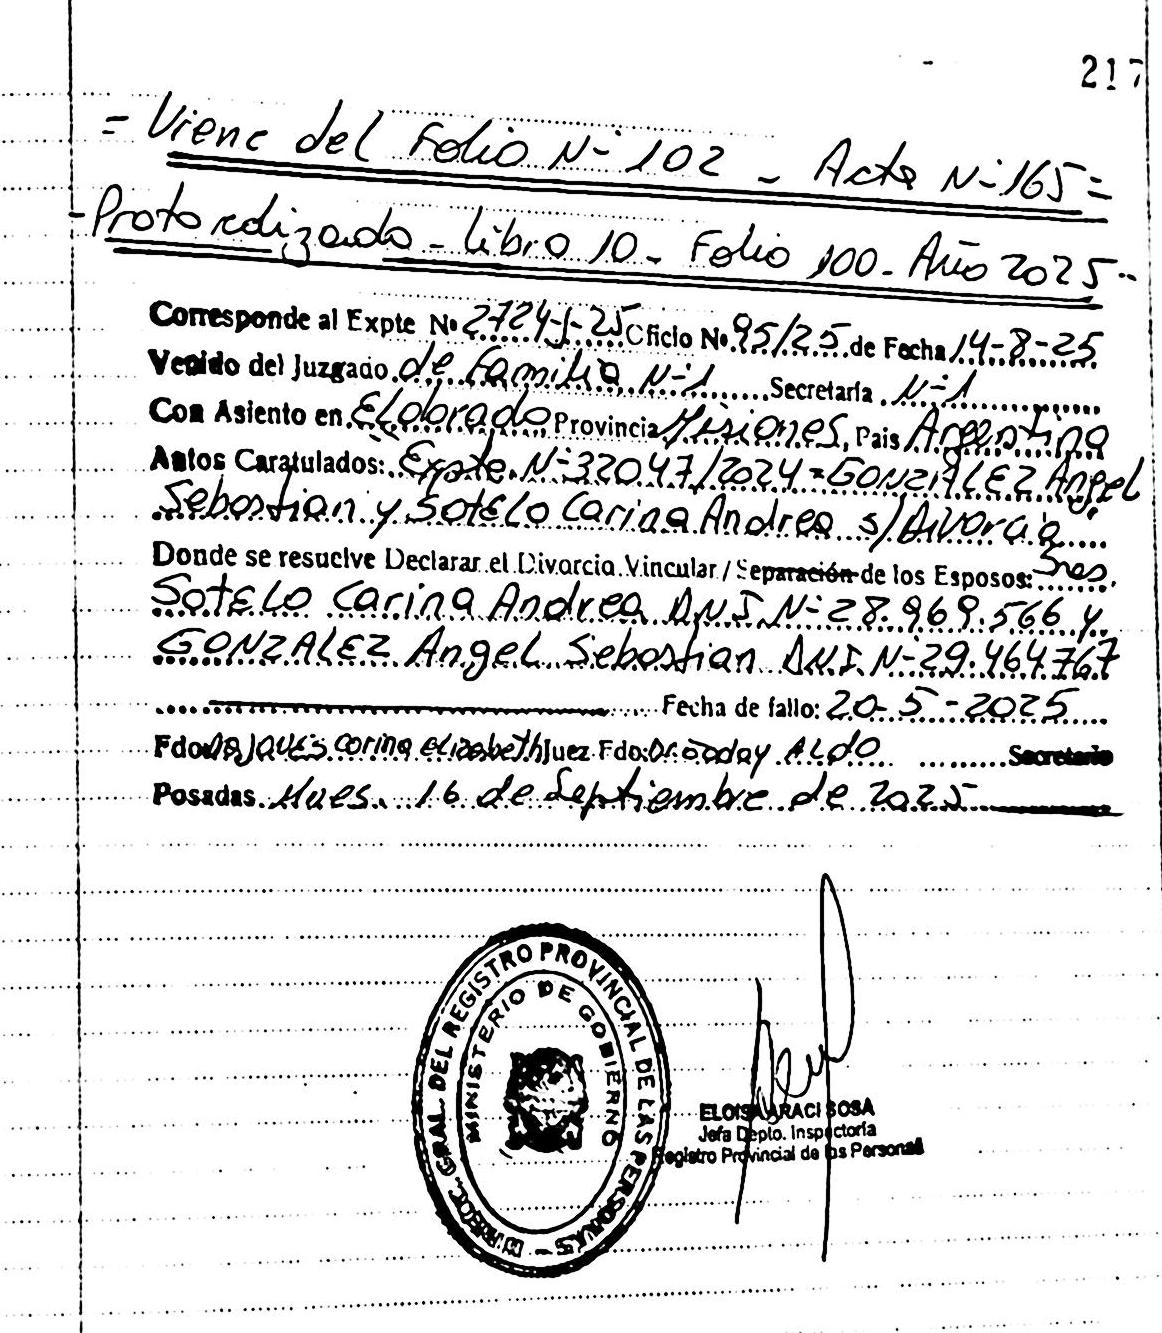 217
= Viene del Folio N- 102 - Acta N- 165 =
- Protocolizado - Libro 10 - Folio 100 - Año 2025 --
Corresponde al Expte Nº 2724-J-25 Oficio Nº 95/25 de Fecha 14-8-25
Venido del Juzgado de Familia N-1 Secretaría N-1
Con Asiento en ELdorado Provincia Misiones, Pais Argentina
Autos Caratulados: Expte. N-32047/2024 = GONZALEZ Angel
Sebastian y Sotelo Carina Andrea s/Divorcio"
Donde se resuelve Declarar el Divorcio Vincular / Separación de los Esposos: Sres.
SOTELO Carina Andrea D.N.I. N-28.969.566 y
GONZALEZ Angel Sebastian D.N.I. N-29.464.767
Fecha de fallo: 20-5-2025
Fdo: Corina Elizabeth Juez Fdo: Dr. ALdo Secretario
Posadas. Mnes. 16 de Septiembre de 2025
DIRECC. GRAL. DEL REGISTRO PROVINCIAL DE LAS PERSONAS -
MINISTERIO DE GOBIERNO
ELOISA ARACI SOSA
Jefa Depto. Inspectoría
Registro Provincial de las Personas